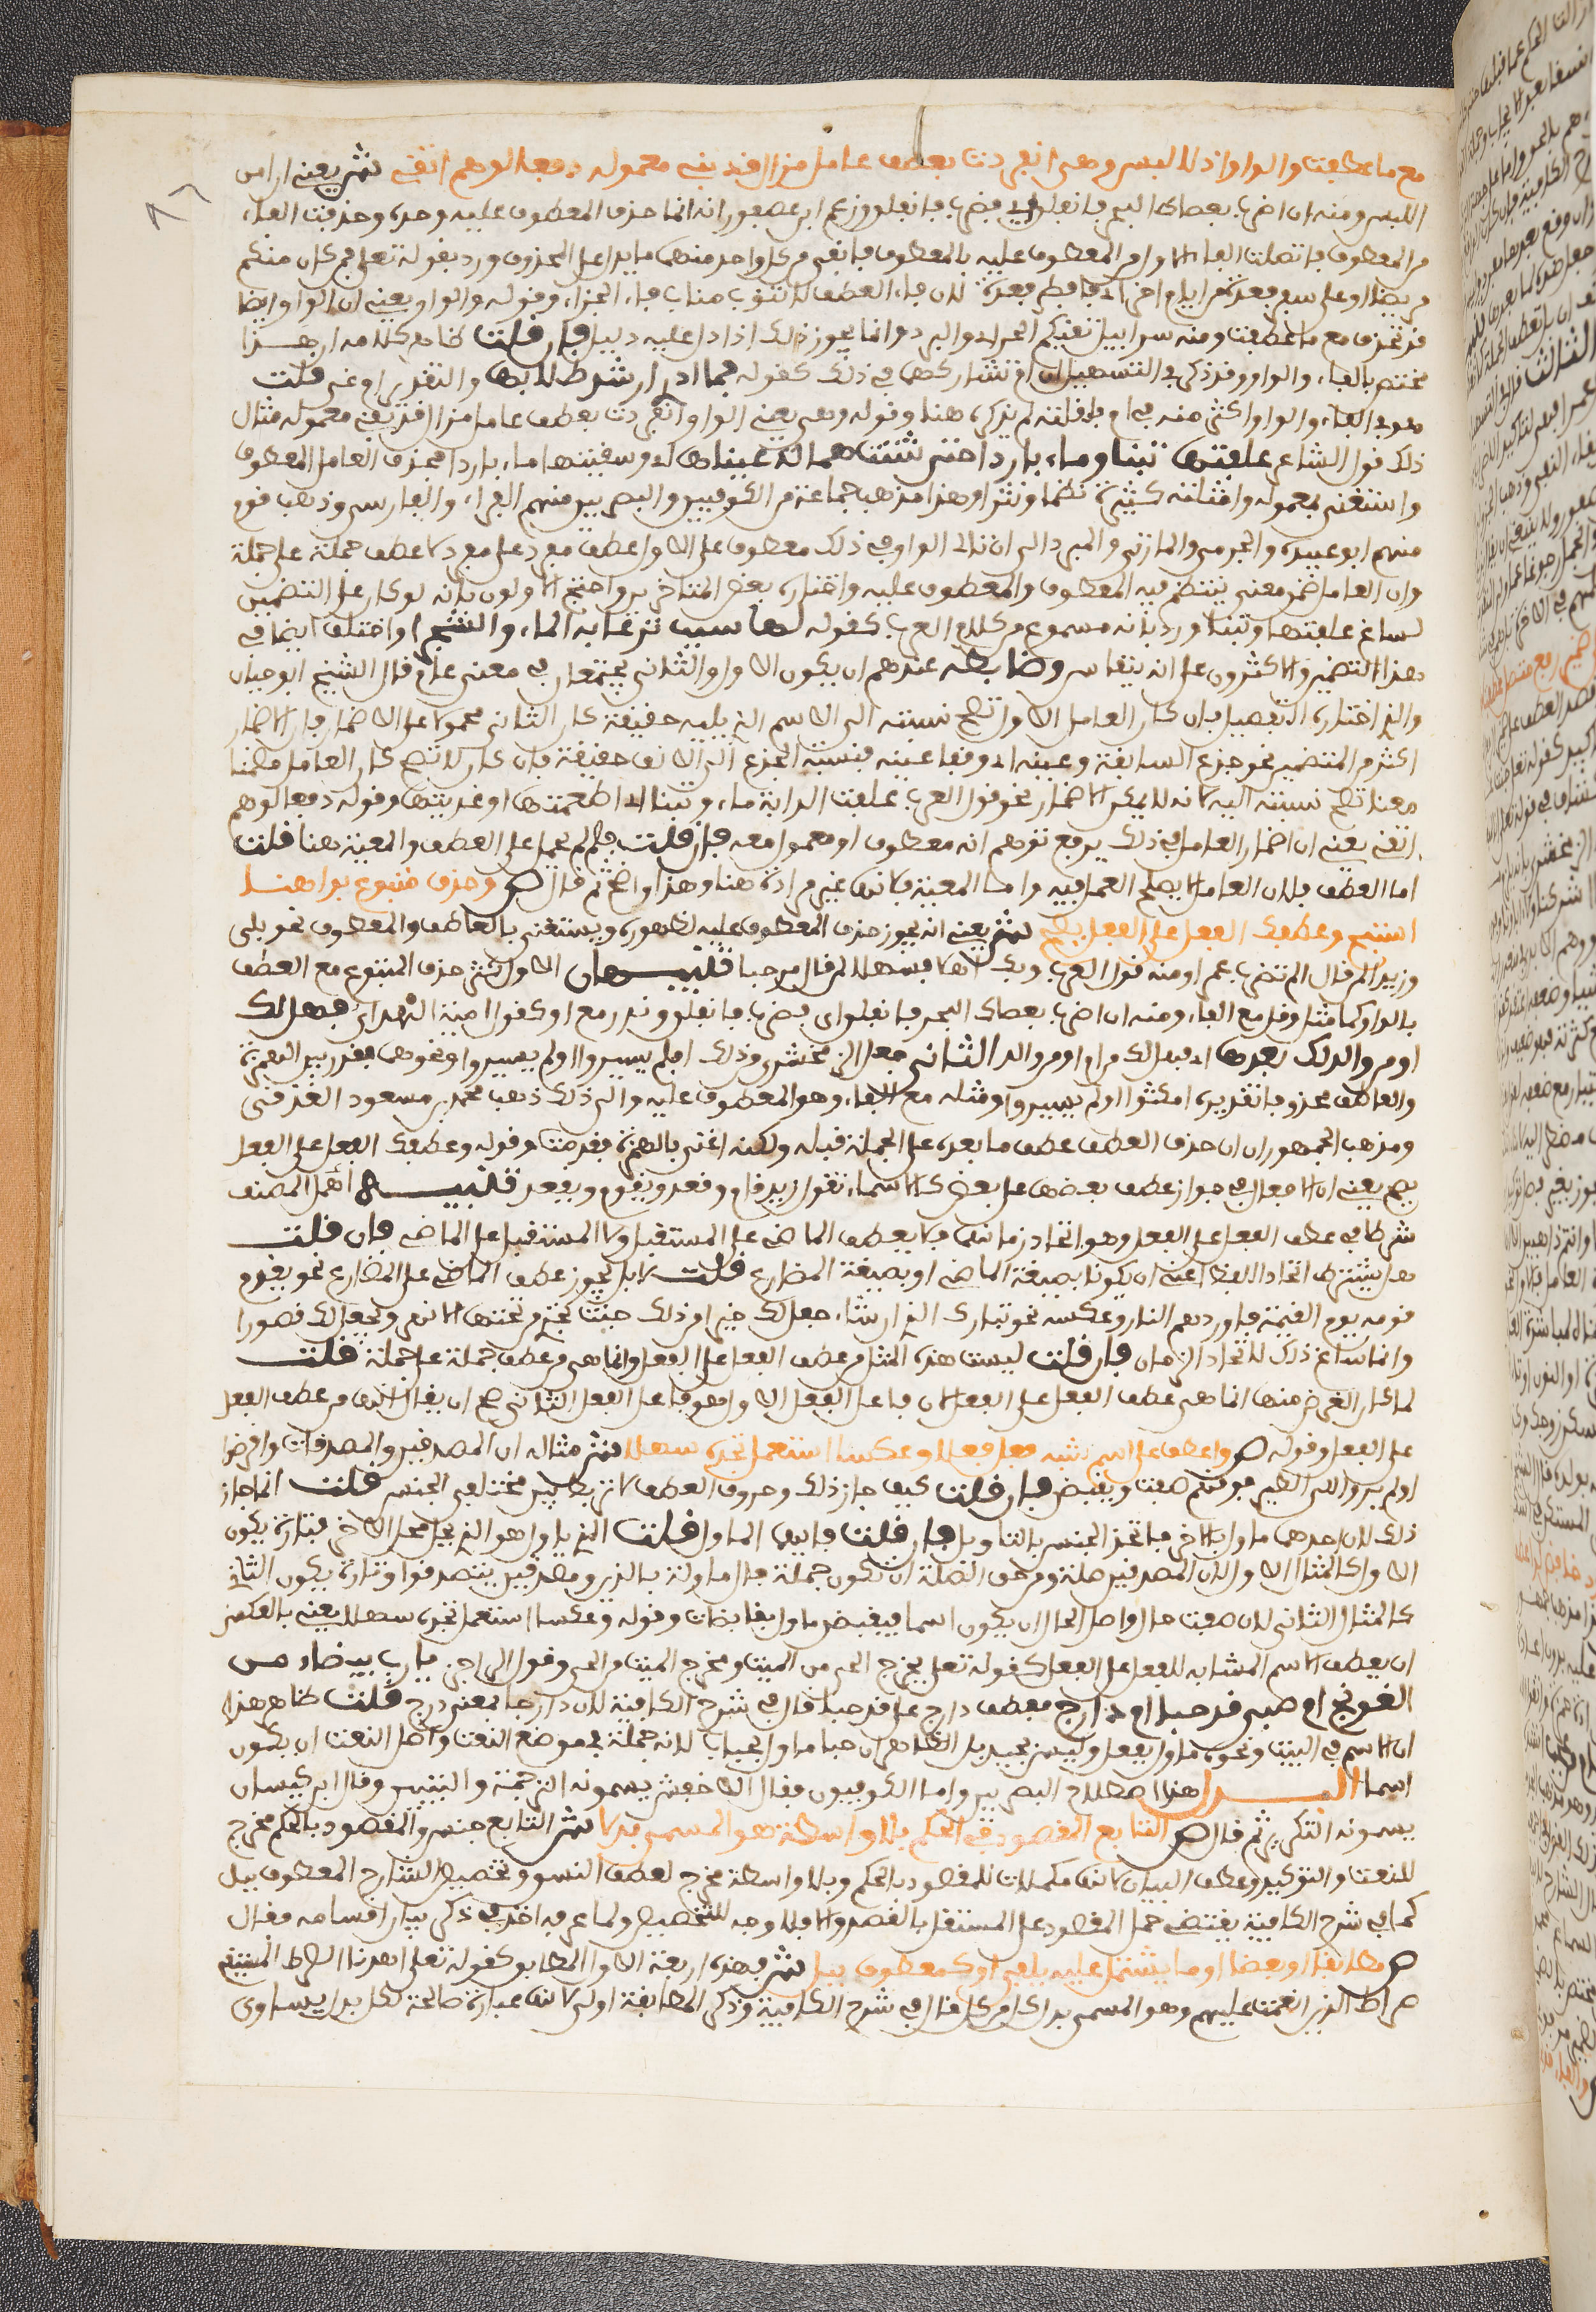 مع ما عطفت والواو اذ لا لبس وهي انفردت بعطف عامل مزال قد بقي معموله دفعا لوهم اتقي ش يعني ان امن
اللبس ومنه ان اضرب بعصاك البحر فانفلق اي فضرب فانفلق وزعم ابن عصفور انه انما حذف المعطوف عليه وحده وحذفت الفاء
من المعطوف فاتصلت الفاء الاولى من المعطوف عليه بالمعطوف فابقي من كل واحد منهما ما يدل على المحذوف ورد بقوله تعلى فمن كان منكم
مريضا او على سفر فعدة من ايام اخر اي فافطر فعدة لان فاء العطف لا تنوب مناب فاء الجزاء وقوله والواو يعني ان الواو ايضا
قد تحذف مع ما عطفت ومنه سرابيل تقيكم الحر اي والبرد وانما يجوز ذلك اذا دل عليه دليل فان قلت ظاهر كلامه ان هذا
مختص بالفاء والواو وقد ذكر في التسهيل ان ام تشاركهما في ذلك كقوله فما ادري ارشد طلابها والتقدير ام غي قلت
هو في الفاء والواو اكثر منه في ام فلقلته لم يذكره هنا وقوله وهي يعني الواو انفردت بعطف عامل مزال قد بقي معموله مثال
ذلك قول الشاعر علفتها تبنا وماء باردا حتى شتت همالة عيناها اي وسقيتها ماء باردا فحذف العامل المعطوف
واستغني بمعموله وامثلته كثيرة نظما ونثرا وهذا مذهب جماعة من الكوفيين والبصريين منهم الفراء والفارسي وذهب قوم
منهم ابو عبيدة والجرمي والمازني والمبرد الى ان تالي الواو في ذلك معطوف على الاول عطف مفرد على مفرد لا عطف جملة على جملة
وان العامل ضمن معنى ينتظم فيه المعطوف والمعطوف عليه واختاره بعض المتاخرين واحتج الاولون بانه لو كان على التضمين
لساغ علفتها وتبنا ورد بانه مسموع من كلام العرب كقوله لها سبب ترعى به الماء والشجر واختلف ايضا في
هذا التضمين والاكثرون على انه ينقاس وضابطه عندهم ان يكون الاول والثاني يجتمعان في معنى عام قال الشيخ ابو حيان
والذي اختاره التفصيل فان كان العامل الاول تصح نسبته الى الاسم الذي يليه حقيقة كان الثاني محمولا على الاضمار لان الاضمار
اكثر من التضمين نحو جدع السابقة وعينيه اي وفقا عينيه فنسبة الجدع الى الانف حقيقة فان كان لا تصح كان العامل مضمنا
معنا تصح نسبته اليه لانه لا يمكن الاضمار نحو قول العرب علفت الدابة ماء وتبنا اي اطعمتها او غذيتها وقوله دفعا لوهم
اتقي يعني ان اضمار العامل في ذلك يرفع توهم انه معطوف او مفعول معه فان قلت فلم لم يحمل على العطف والمعية هنا قلت
اما العطف فلان العامل لا يصلح العمل فيه واما المعية فلانها غير مرادة هنا وهذا واضح ثم قال ص وحذف متبوع بدا هنا
استبح وعطفك الفعل على الفعل يصح ش يعني انه يجوز حذف المعطوف عليه لظهوره ويستغنى بالعاطف والمعطوف نحو بلى
وزيدا لمن قال الم تضرب عمرا ومنه قول العرب وبك اهلا وسهلا لمن قال مرحبا تنبيهان الاول كثر حذف المتبوع مع العطف
بالواو كما مثل وقل مع الفاء ومنه ان اضرب بعصاك البحر فانفلق اي فضرب فانفلق وندر مع او كقول امية الهذلي فهل لك
او من والد لك بعدها اي فهل لك من اخ او من والد الثاني جعل الزمخشري من ذلك افلم يسيروا اولم يسيروا ونحوها فقدر بين الهمزة
والعاطف محذوفا تقديره امكثوا ولم يسيروا ومثله مع الفاء وهو المعطوف عليه والى ذلك ذهب محمد بن مسعود الغزني
ومذهب الجمهور ان ان حرف العطف عطف ما بعده على الجملة قبله ولكنه اعتني بالهمزة فقدمت وقوله وعطفك الفعل على الفعل
يصح يعني ان الافعال في جواز عطف بعضها على بعض كالاسماء تقول زيد قام وقعد ويقوم ويقعد تنبيه اهمل المصنف
شرطا في عطف الفعل على الفعل وهو اتحاد زمانهما فلا يعطف الماضي على المستقبل ولا المستقبل على الماضي فان قلت
هل يشترط اتحاد اللفظ اعني ان يكونا بصيغة الماضي او بصيغة المضارع قلت لا بل يجوز عطف الماضي على المضارع نحو يقدم
قومه يوم القيمة فاوردهم النار وعكسه نحو تبارك الذي ان شاء جعل لك خيرا من ذلك جنت تجري من تحتها الانهر ويجعل لك قصورا
وانما ساغ ذلك لاتحاد الزمان فان قلت ليست هذه المثل من عطف الفعل على الفعل وانما هي من عطف جملة على جملة قلت
لما كان الغرض منها انما هو عطف الفعل على الفعل لان فاعل الفعل الاول هو فاعل الفعل الثاني صح ان يقال انها من عطف الفعل
على الفعل وقوله ص واعطف على اسم شبه فعل فعلا وعكسا استعمل تجده سهلا ش مثاله ان المصدقين والمصدقات واقرضوا
اولم يروا الى الطير فوقهم صفت ويقبضن فان قلت كيف جاز ذلك وحروف العطف لا تربط بين مختلفي الجنس قلت انما جاز
ذلك لان احدهما ماول بالاخر فاتحد الجنس بالتاويل فان قلت فايهما الماول قلت الذي ياول هو الذي يحل محل الاخر فتارة يكون
الاول كالمثال الاول لان المصدقين صلة ومن حق الصلة ان تكون جملة فال ماولة بالذين ومصدقين بتصدقوا وتارة يكون الثاني
كالمثال الثاني لان صفت حال واصل الحال ان يكون اسما فيقبضن ماول بقابضات وقوله وعكسا استعمل تجده سهلا يعني بالعكس
ان يعطف الاسم المشابه للفعل على الفعل كقوله تعلى يخرج الحي من الميت ومخرج الميت من الحي وقول الراجز يا رب بيضاء من
العوهج ام صبي قد حبا او دارج فعطف دارج على قد حبا قال في شرح الكافية لان دارجا بمعنى درج قلت ظاهر هذا
ان الاسم في البيت ونحوه ماول بفعل وليس بجيد بل الظاهر ان حبا ماول بحاب لانه جملة في موضع النعت واصل النعت ان يكون
اسما البدل هذا اصطلاح البصريين واما الكوفيون فقال الاخفش يسمونه الترجمة والتبيين وقال ابن كيسان
يسمونه التكرير ثم قال ص التابع المقصود في الحكم بلا واسطة هو المسمى بدلا ش التابع جنس والمقصود بالحكم مخرج
للنعت والتوكيد وعطف البيان لانها مكملات للمقصود بالحكم وبلا واسطة مخرج لعطف النسق وتخصيص الشارح المعطوف ببل
كما في شرح الكافية يقتضي حمل المقصود على المستقل بالقصد والا فلا وجه للتخصيص ولما عرفه اخذ في ذكر بيان اقسامه فقال
ص مطابقا او بعضا او ما يشتمل عليه يلفى او كمعطوف ببل ش فهذه اربعة الاول المطابق كقوله تعلى اهدنا الصراط المستقيم
صراط الذين انعمت عليهم وهو المسمى بدل كل من كل قال في شرح الكافية وذكر المطابقة اولى لانها عبارة صالحة لكل بدل يساوي